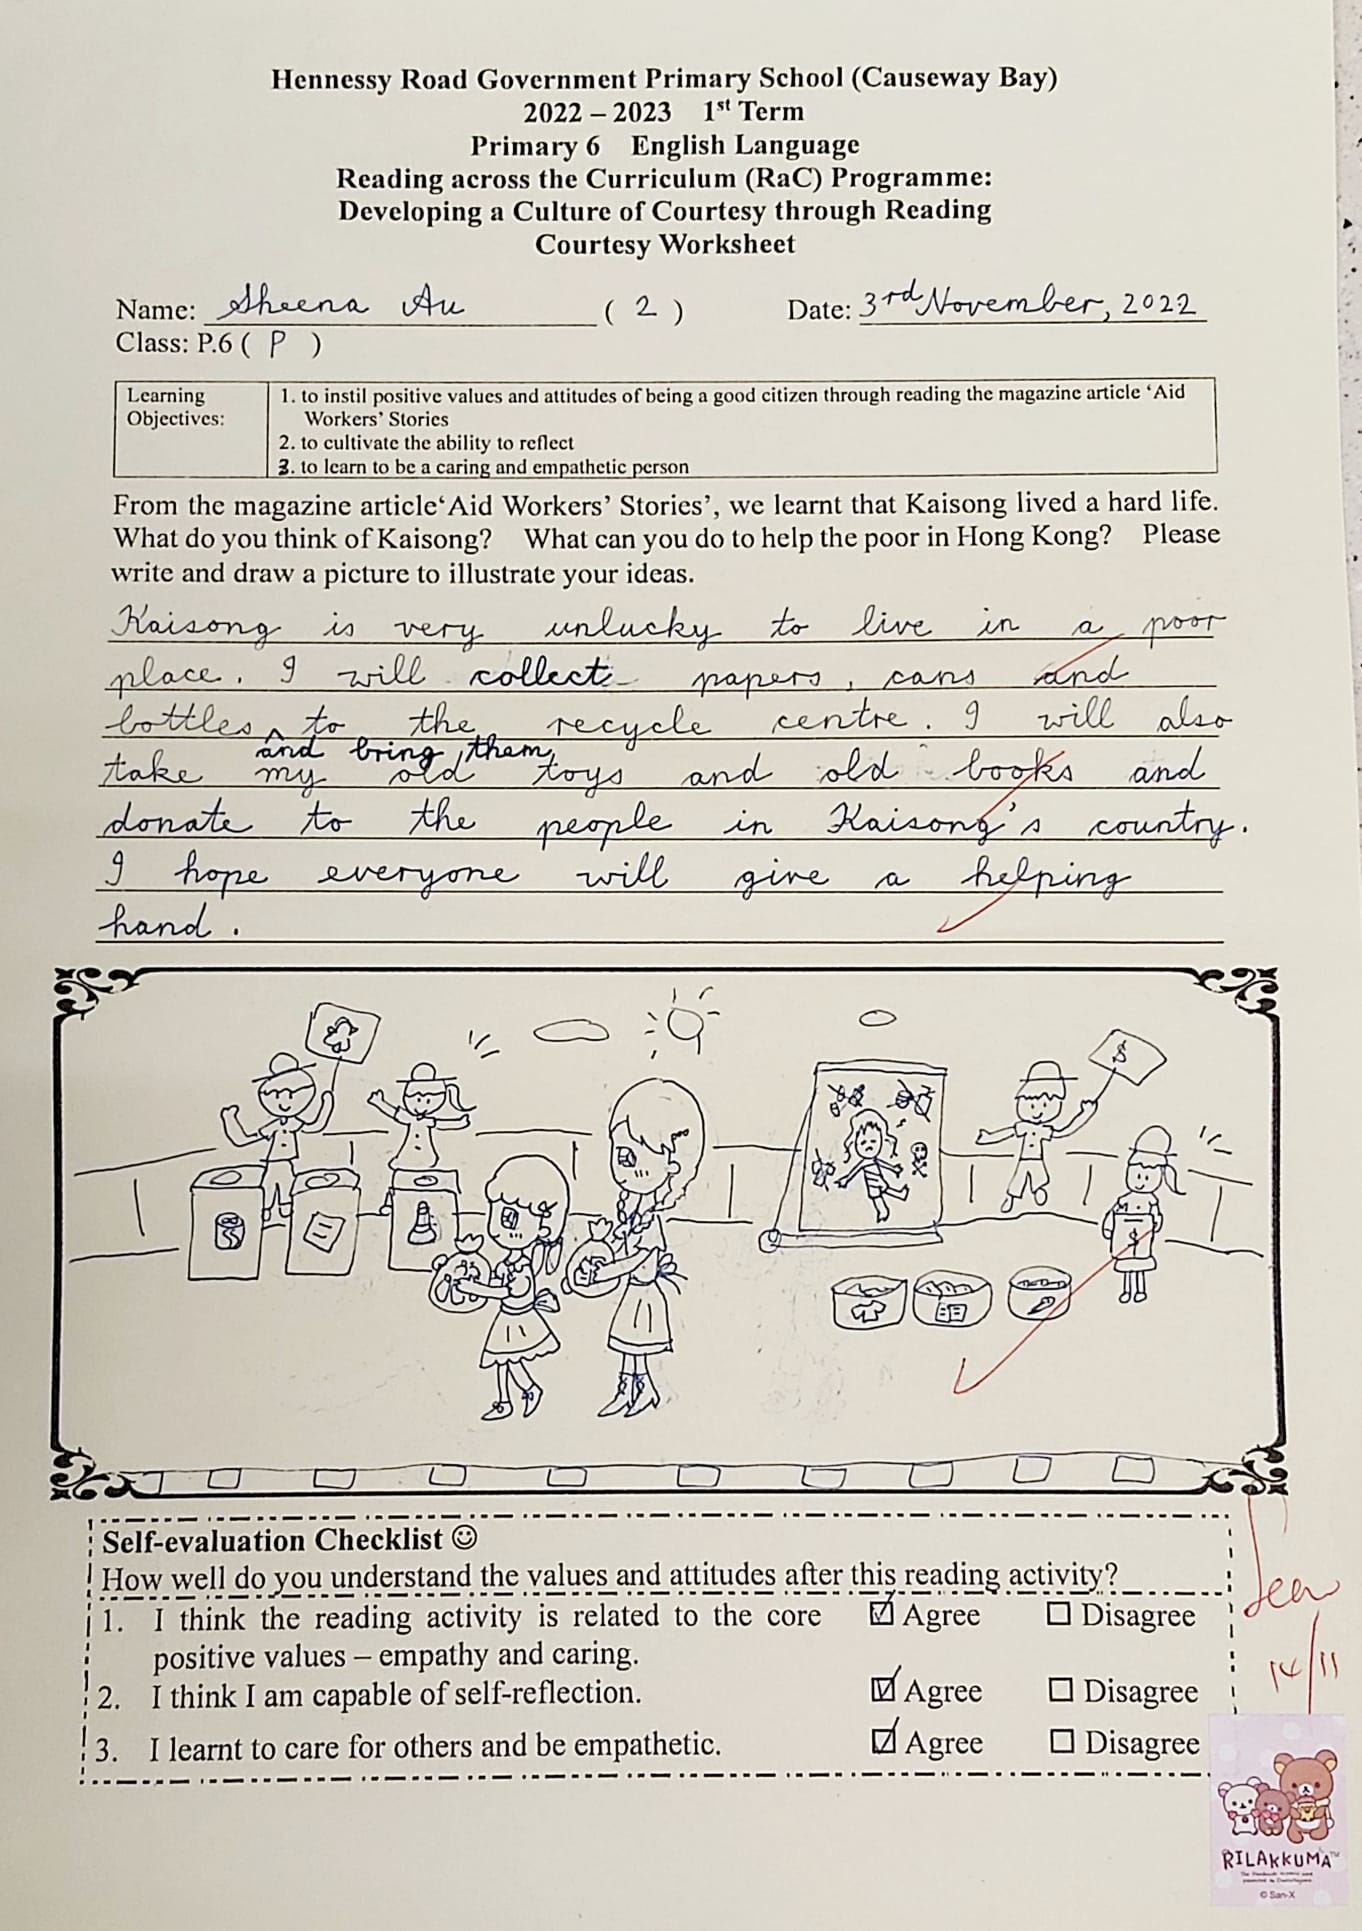 Hennessy Road Government Primary School (Causeway Bay)
2022 – 2023 1st Term
Primary 6 English Language
Reading across the Curriculum (RaC) Programme:
Developing a Culture of Courtesy through Reading
Courtesy Worksheet
Name: Sheena Au ( 2 ) Date: 3rd November, 2022
Class: P.6 ( P )
Learning Objectives:
1. to instil positive values and attitudes of being a good citizen through reading the magazine article ‘Aid
Workers’ Stories
2. to cultivate the ability to reflect
3. to learn to be a caring and empathetic person
From the magazine article‘Aid Workers’ Stories’, we learnt that Kaisong lived a hard life.
What do you think of Kaisong? What can you do to help the poor in Hong Kong? Please
write and draw a picture to illustrate your ideas.
Kaisong is very unlucky to live in a poor
place. I will collect papers, cans and
bottles to the recycle centre. I will also
and bring them
take my old toys and old books and
donate to the people in Kaisong's country.
I hope everyone will give a helping
hand.
$
$
Self-evaluation Checklist ☺
How well do you understand the values and attitudes after this reading activity?
1. I think the reading activity is related to the core ☑ Agree ☐ Disagree
positive values – empathy and caring.
2. I think I am capable of self-reflection. ☑ Agree ☐ Disagree
3. I learnt to care for others and be empathetic. ☑ Agree ☐ Disagree
14/11
RILAKKUMA™
© San-X